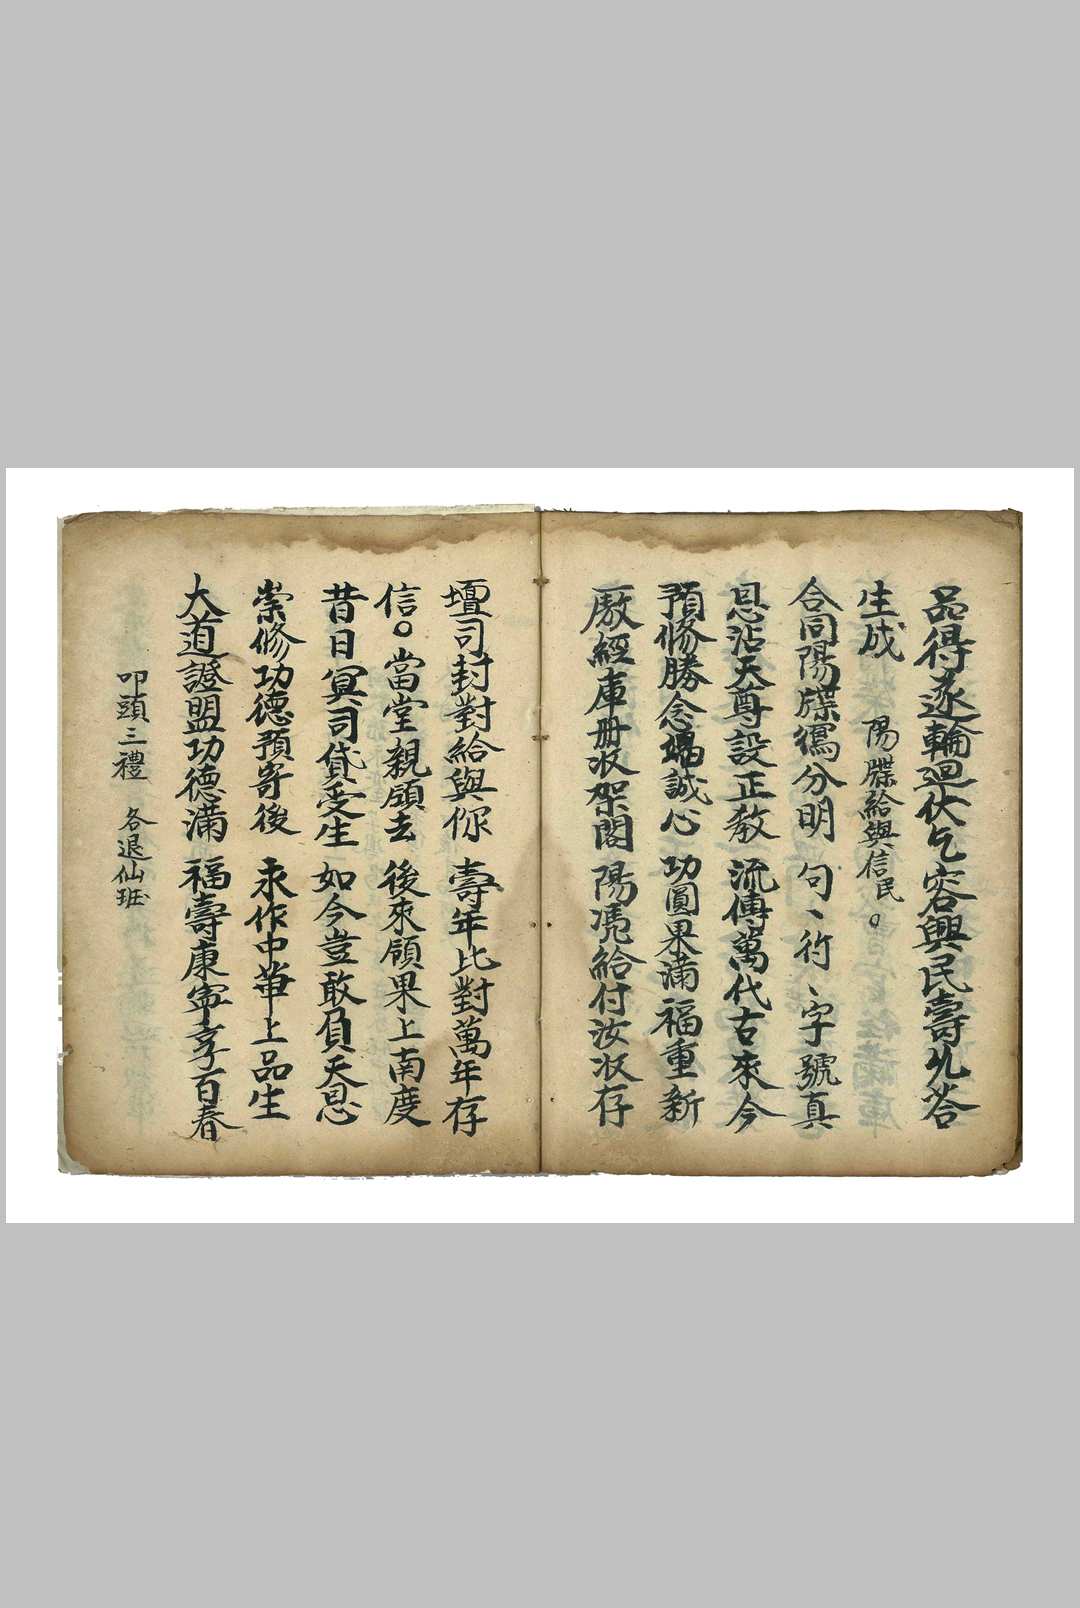 品得遂輪迴伏乞容興民壽凡荅
生成
陽牒給與信民。
合同陽牒寫分明 句、行、字號真
恩沾天尊設正教 流傳萬代古來今
預修勝念竭誠心 功圓果滿福重新
一厫經庫册収架閣 陽凴給付汝収存
壇司封對給與你 壽年比對萬年存
信。當堂親領去 後來領果上南度
昔日冥司貸受生 如今豈敢負天恩
崇修功德預寄後 永作中華上品生
大道證盟功德滿 福壽康寧享百春
叩頭三禮 各退仙班